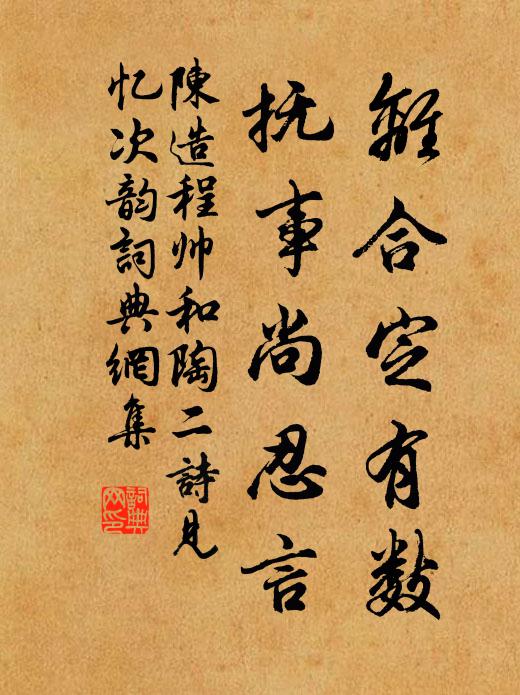 離合定有数
抚事尚忍言
陳造程帅和陶二詩見
忆次韵詞典網集
詞典网印